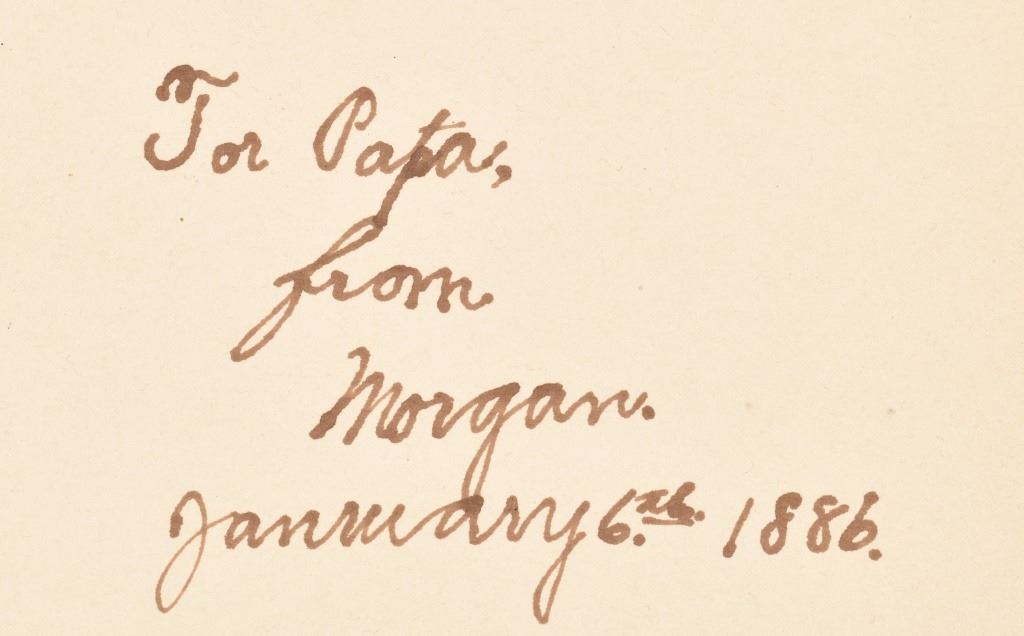 For Papa,
from
Morgan.
January 6.th 1886.